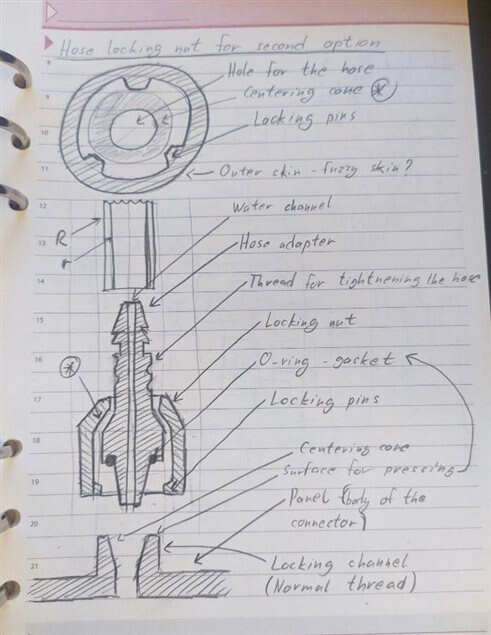 Hose locking nut for second option
8
Hole for the hose
9
Centering cone *
10
Locking pins
11
Outer skin - fuzzy skin?
12
Water channel
R
13
Hose adapter
r
14
Thread for tightnening the hose
15
Locking nut
16
O-ring - gasket
*
17
Locking pins
18
Centering cone
19
Surface for pressing
Panel (body of the
20
connector)
21
Locking channel
(Normal thread)